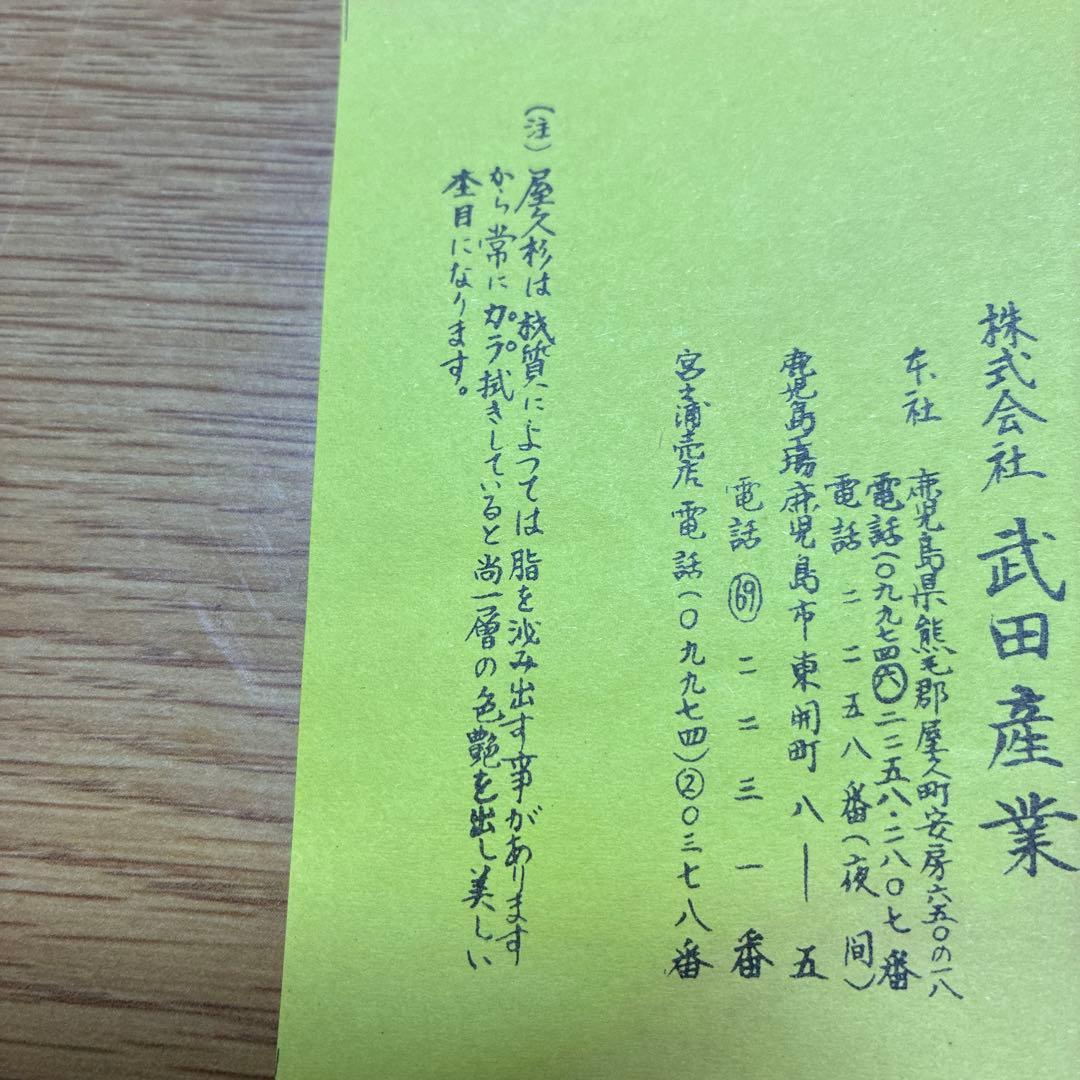 株式会社 武田産業
本社 鹿児島県熊毛郡屋久町安房六五〇の一八
電話(〇九九七四)六 二二五八・二八〇七番
電話 二二五八番(夜間)
鹿児島工場 鹿児島市東開町八ー五
電話 69 二二三一番
宮之浦売店 電話(〇九九七四)②〇三七八番
(注) 屋久杉は材質によつては脂を滲み出す事があります
から常にカラ拭きしていると尚一層の色艶を出し美しい
杢目になります。